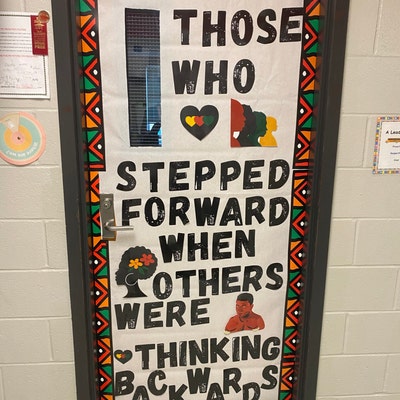 THOSE
WHO
STEPPED
FORWARD
WHEN
OTHERS
WERE
THINKING
BACKWARDS